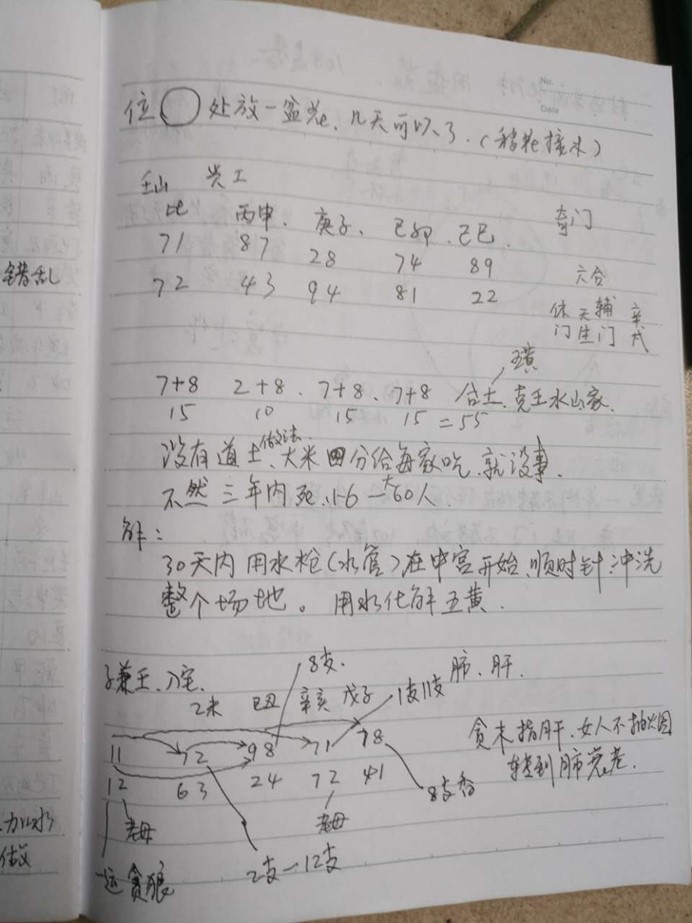 No.
Date
位○处放一盆花、几天可以了.（稻花接水）
壬山 兴工
比 丙申. 庚子、己卯、己巳. 奇门
71 87 28 74 89
72 43 94 81 22 六合
休 天 辅 辛
门 生 门 戌
错乱
五黄
7+8 2+8. 7+8、7+8 合土、克壬水山家.
15 10 15 15 = 55
没有道士做法、大米四分给每家吃、就没事.
不然三年内死.16一大60人.
解：
30天内用水枪（水管）在中宫开始、顺时针冲洗
整个场地。用水化解五黄.
子兼壬、入宅. 8支. 肺、肝.
乙未 己丑 辛亥 戊子 1支11支
11 72 98 71 78 贪木指肝、女人不抽烟
12 63 24 72 41 转到肺
8支香
老母 老母
加水
做
一运贪狼 2支一12支